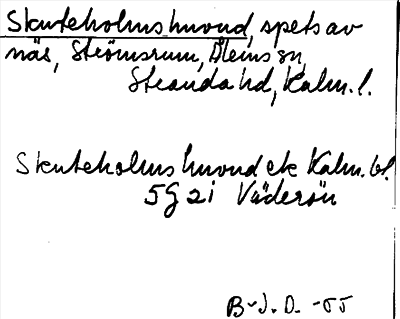 Skuteholms huvud, spets av
näs, Strömsrum, Ålems sn,
Stranda hd, Kalm. l.
Skuteholms huvud ek Kalm. bl.
5G 2i Väderön
B-J. D. -55